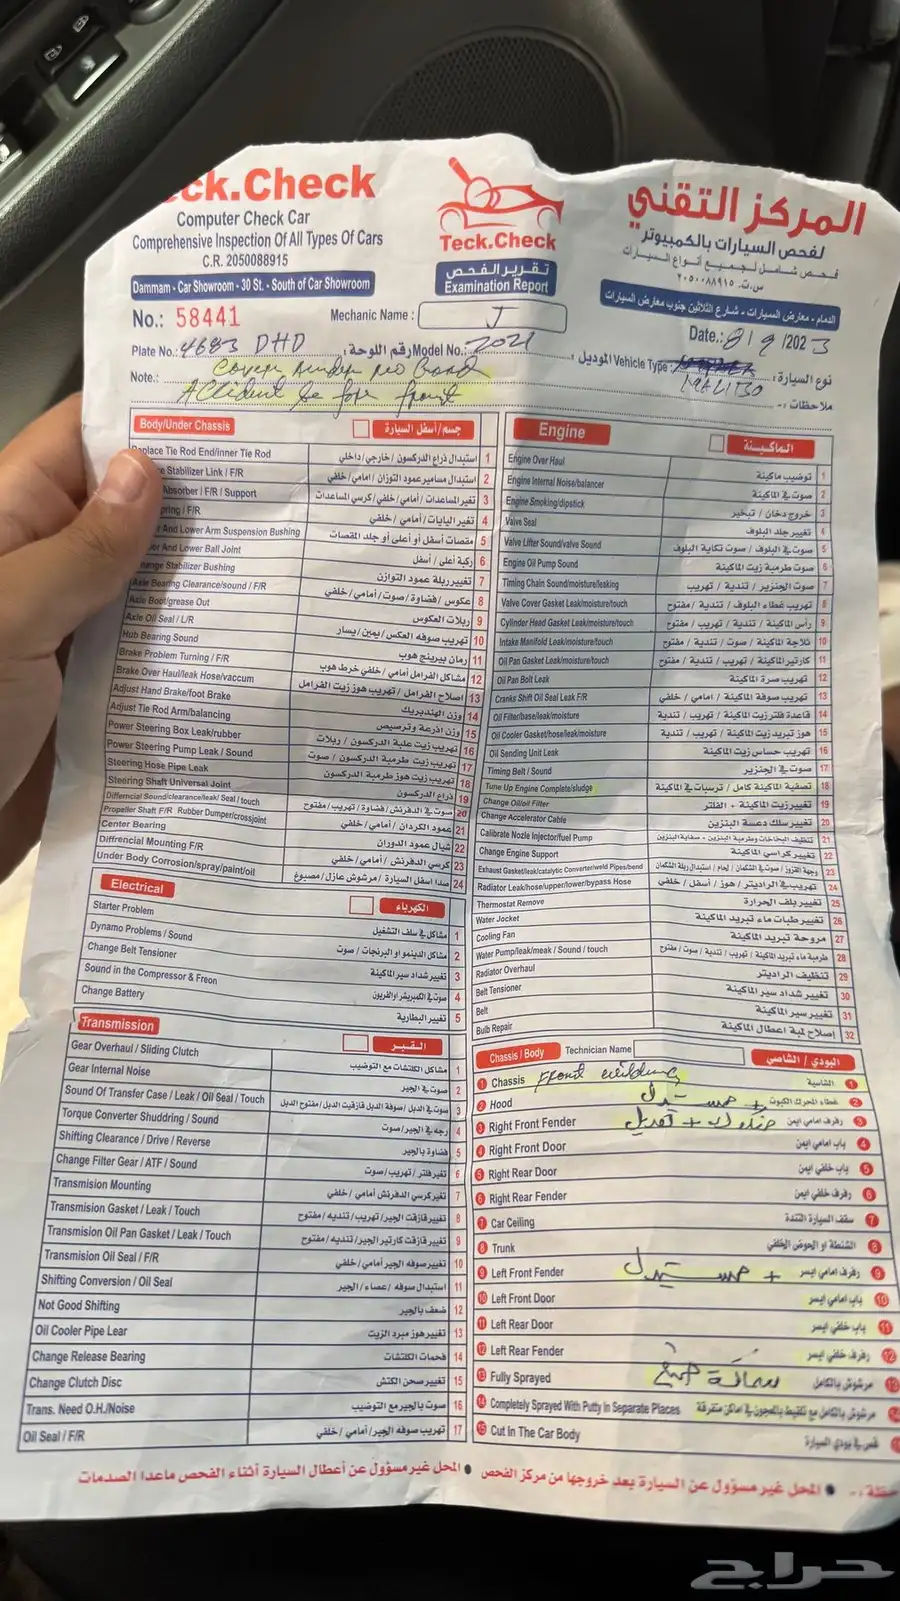 eck.Check
Computer Check Car
Comprehensive Inspection Of All Types Of Cars
C.R. 2050088915
Dammam - Car Showroom - 30 St. - South of Car Showroom
Teck.Check
تقرير الفحص
Examination Report
المركز التقني
لفحص السيارات بالكمبيوتر
فحص شامل لجميع أنواع السيارات
س.ت. ٢٠٥٠٠٨٨٩١٥
الدمام - معارض السيارات - شارع الثلاثين جنوب معارض السيارات
No.: 58441
Mechanic Name : J
Date.: 8/9/2023
Plate No.: 4683 DHD رقم اللوحة: Model No.: 2021 الموديل: Vehicle Type: MALIBO نوع السيارة:
Note.: Cover under no Good ملاحظات :-
Accident before front
Body/Under Chassis جسم / أسفل السيارة
place Tie Rod End/inner Tie Rod استبدال ذراع الدركسون / خارجي / داخلي 1
Stabilizer Link / F/R استبدال مسامير عمود التوازن / امامي / خلفي 2
Absorber / F/R / Support تغير المساعدات / أمامي / خلفي / كرسي المساعدات 3
ring / F/R تغير اليايات / أمامي / خلفي 4
And Lower Arm Suspension Bushing مقصات أسفل أو أعلى أو جلد المقصات 5
And Lower Ball Joint ركبة أعلى / أسفل 6
ange Stabilizer Bushing تغيير ربلة عمود التوازن 7
Axle Bearing Clearance/sound / F/R عكوس / فضاوة / صوت / أمامي / خلفي 8
Axle Boot/grease Out ربلات العكوس 9
Axle Oil Seal / L/R تهريب صوفه العكس / يمين / يسار 10
Hub Bearing Sound رمان بيرينج هوب 11
Brake Problem Turning / F/R مشاكل الفرامل أمامي / خلفي خرط هوب 12
Brake Over Haul/leak Hose/vaccum اصلاح الفرامل / تهريب هوز زيت الفرامل 13
Adjust Hand Brake/foot Brake وزن الهندبريك 14
Adjust Tie Rod Arm/balancing وزن اذرعة وترصيص 15
Power Steering Box Leak/rubber تهريب زيت علبة الدركسون / ربلات 16
Power Steering Pump Leak / Sound تهريب زيت طرمبة الدركسون / صوت 17
Steering Hose Pipe Leak تهريب زيت هوز طرمبة الدركسون 18
Steering Shaft Universal Joint ذراع الدركسون 19
Differncial Sound/clearance/leak/ Seal / touch صوت في الدفرنش / فضاوة / تهريب / مفتوح 20
Propeller Shaft F/R Rubber Dumper/crossjoint عمود الكردان / أمامي / خلفي 21
Center Bearing شيال عمود الدوران 22
Diffrencial Mounting F/R كرسي الدفرنش / أمامي / خلفي 23
Under Body Corrosion/spray/paint/oil صدا أسفل السيارة / مرشوش عازل / مصبوغ 24
Electrical الكهرباء
Starter Problem مشاكل في سلف التشغيل 1
Dynamo Problems / Sound مشاكل الدينمو أو البرنجات / صوت 2
Change Belt Tensioner تغيير شداد سير الماكينة 3
Sound in the Compressor & Freon صوت في الكمبريشر او الفريون 4
Change Battery تغيير البطارية 5
Transmission القير
Gear Overhaul / Sliding Clutch مشاكل الكلتشات مع التوضيب 1
Gear Internal Noise صوت في الجير 2
Sound Of Transfer Case / Leak / Oil Seal / Touch صوت في الدبل / سوفة الدبل / قازقيت الدبل / مفتوح الدبل 3
Torque Converter Shuddring / Sound رجه في الجير / صوت 4
Shifting Clearance / Drive / Reverse فضاوة بالجير 5
Change Filter Gear / ATF / Sound تغير فلتر / تهريب / صوت 6
Transmision Mounting تغير كرسي الدفرنش أمامي / خلفي 7
Transmision Gasket / Leak / Touch تغيير قازقت الجير / تهريب / تنديه / مفتوح 8
Transmision Oil Pan Gasket / Leak / Touch تغيير قازقت كارتير الجير / تنديه / مفتوح 9
Transmision Oil Seal / F/R تغيير سوفه الجير أمامي / خلفي 10
Shifting Conversion / Oil Seal استبدال سوفه / عصاء / الجير 11
Not Good Shifting ضعف بالجير 12
Oil Cooler Pipe Lear تغيير هوز مبرد الزيت 13
Change Release Bearing فحمات الكلتشات 14
Change Clutch Disc تغيير صحن الكلتش 15
Trans. Need O.H./Noise صوت بالجير مع التوضيب 16
Oil Seal / F/R تهريب سوفه الجير / أمامي / خلفي 17
Engine الماكينة
Engine Over Haul توضيب ماكينة 1
Engine Internal Noise/balancer صوت في الماكينة 2
Engine Smoking/dipstick خروج دخان / تبخير 3
Valve Seal تغيير جلد البلوف 4
Valve Lifter Sound/valve Sound صوت في البلوف / صوت تكاية البلوف 5
Engine Oil Pump Sound صوت طرمبة زيت الماكينة 6
Timing Chain Sound/moisture/leaking صوت الجنزير / تندية / تهريب 7
Valve Cover Gasket Leak/moisture/touch تهريب غطاء البلوف / تندية / مفتوح 8
Cylinder Head Gasket Leak/moisture/touch رأس الماكينة / تهريب / تندية / مفتوح 9
Intake Manifold Leak/moisture/touch ثلاجة الماكينة / صوت / تندية / مفتوح 10
Oil Pan Gasket Leak/moisture/touch كارتير الماكينة / تهريب / تندية / مفتوح 11
Oil Pan Bolt Leak تهريب صرة الماكينة 12
Cranks Shift Oil Seal Leak F/R تهريب سوفة الماكينة / امامي / خلفي 13
Oil Filter/base/leak/moisture قاعدة فلتر زيت الماكينة / تهريب / تندية 14
Oil Cooler Gasket/hose/leak/moisture هوز تبريد زيت الماكينة / تهريب / تندية 15
Oil Sending Unit Leak تهريب حساس زيت الماكينة 16
Timing Belt / Sound صوت في الجنزير 17
Tune Up Engine Complete/sludge تصفية الماكينة كامل / ترسبات في الماكينة 18
Change Oil/oil Filter تغيير زيت الماكينة + الفلتر 19
Change Accelerator Cable تغيير سلك دعسة البنزين 20
Calibrate Nozle Injector/fuel Pump تنظيف البخاخات وطرمبة البنزين + سفاية البنزين 21
Change Engine Support تغيير كراسي الماكينة 22
Exhaust Gasket/leak/catalytic Converter/weld Pipes/bend 23
Radiator Leak/hose/upper/lower/bypass Hose تهريب في الراديتر / هوز / أسفل / خلفي 24
Thermostat Remove تغيير بلف الحرارة 25
Water Jocket تغيير طبات ماء تبريد الماكينة 26
Cooling Fan مروحة تبريد الماكينة 27
Water Pump/leak/meak / Sound / touch طرمبة ماء تبريد الماكينة / تهريب / تندية / صوت / مفتوح 28
Radiator Overhaul تنظيف الراديتر 29
Belt Tensioner تغيير شداد سير الماكينة 30
Belt تغيير سير الماكينة 31
Bulb Repair إصلاح لمبة اعطال الماكينة 32
Chassis / Body Technician Name البودي / الشاصي
1 Chassis Front wilding الشاسية 1
2 Hood مستبدل + غطاء المحرك الكبوت 2
3 Right Front Fender + تعديل رفرف امامي ايمن 3
4 Right Front Door باب امامي ايمن 4
5 Right Rear Door باب خلفي ايمن 5
6 Right Rear Fender رفرف خلفي ايمن 6
7 Car Ceiling سقف السيارة التندة 7
8 Trunk الشنطة او الحوض الخلفي 8
9 Left Front Fender مستبدل + رفرف امامي ايسر 9
10 Left Front Door باب امامي ايسر 10
11 Left Rear Door باب خلفي ايسر 11
12 Left Rear Fender رفرف خلفي ايسر 12
13 Fully Sprayed سماكة صبغ مرشوش بالكامل 13
14 Completely Sprayed With Putty In Separate Places مرشوش بالكامل مع تلقيط بالمعجون في اماكن متفرقة 14
15 Cut In The Car Body قص في بودي السيارة
حظة :- ● المحل غير مسؤول عن السيارة بعد خروجها من مركز الفحص ● المحل غير مسؤول عن أعطال السيارة أثناء الفحص ماعدا الصدمات
حراج